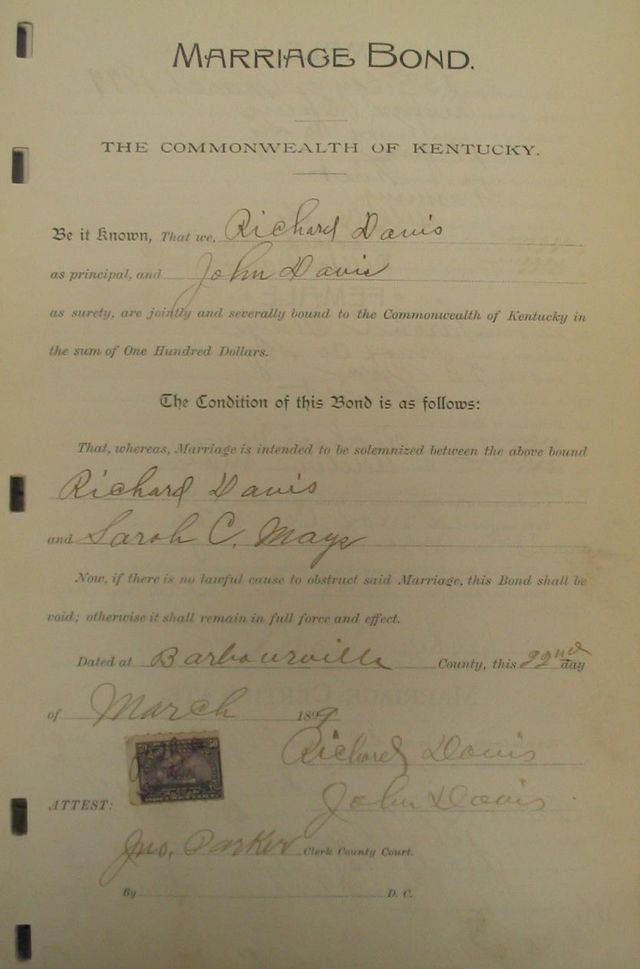 MARRIAGE BOND.
THE COMMONWEALTH OF KENTUCKY.
Be it Known, That we, Richard Davis
as principal, and John Davis
as surety, are jointly and severally bound to the Commonwealth of Kentucky in
the sum of One Hundred Dollars.
The Condition of this Bond is as follows:
That, whereas, Marriage is intended to be solemnized between the above bound
Richard Davis
and Sarah C. Mays
Now, if there is no lawful cause to obstruct said Marriage, this Bond shall be
void; otherwise it shall remain in full force and effect.
Dated at Barbourville County, this 22nd day
of March 1899
Richard Davis
John Davis
ATTEST:
Jno. Parker Clerk County Court.
By D. C.